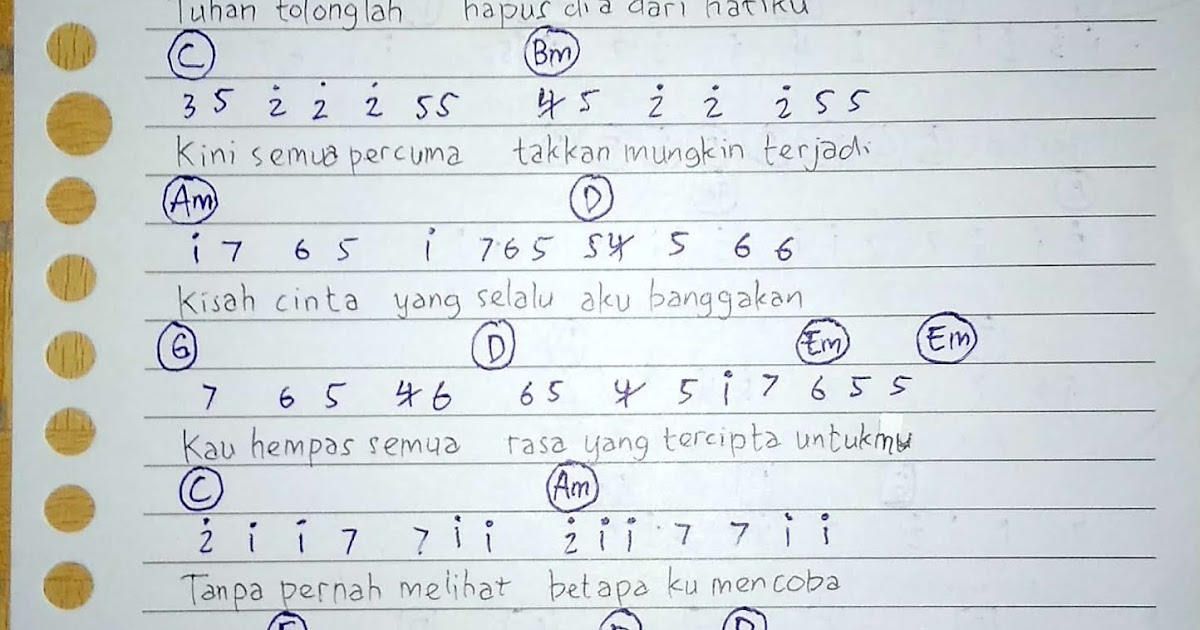 Tuhan tolonglah hapus dia dari hatiku
C Bm
3 5 2̇ 2̇ 2̇ 5 5 4̸ 5 2̇ 2̇ 2̇ 5 5
Kini semua percuma takkan mungkin terjadi
Am D
1̇ 7 6 5 1̇ 7 6 5 5 4̸ 5 6 6
Kisah cinta yang selalu aku banggakan
G D Em Em
7 6 5 4̸ 6 6 5 4̸ 5 1̇ 7 6 5 5
Kau hempas semua rasa yang tercipta untukmu
C Am
2̇ 1̇ 1̇ 7 7 1̇ 1̇ 2̇ 1̇ 1̇ 7 7 1̇ 1̇
Tanpa pernah melihat betapa ku mencoba